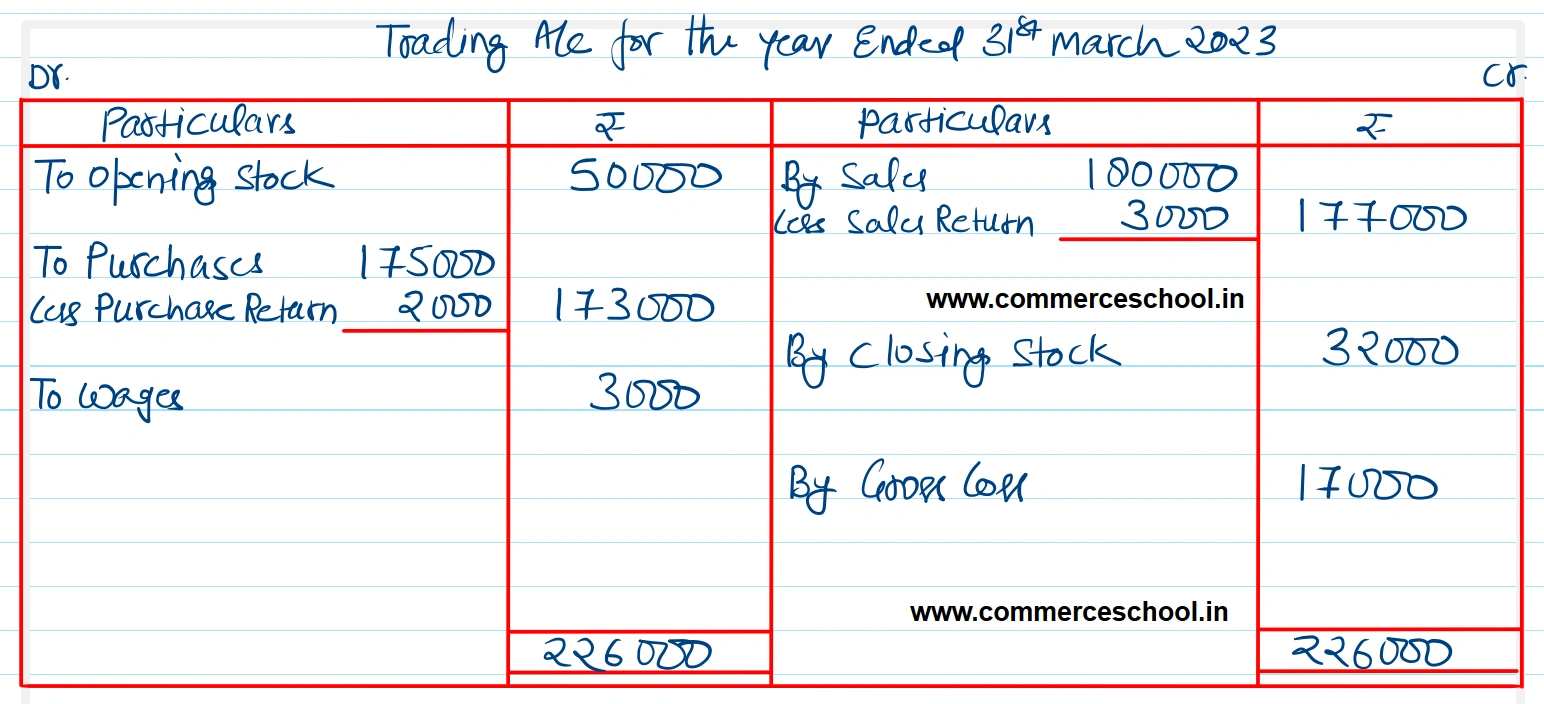 Trading A/c for the year Ended 31st March 2023
Dr. Cr.
Particulars ₹ Particulars ₹
To Opening Stock 50000 By Sales 180000
Less Sales Return 3000 177000
To Purchases 175000
www.commerceschool.in
Less Purchase Return 2000 173000
By Closing Stock 32000
To Wages 3000
By Gross Loss 17000
www.commerceschool.in
226000 226000